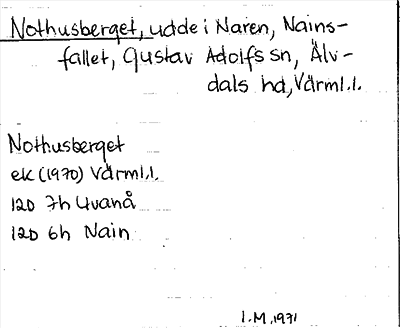 Nothusberget, udde i Naren, Nains-
fallet, Gustav Adolfs sn, Älv-
dals hd, Värml.l.
Nothusberget
ek (1970) Värml.l.
12D 7h Uvanå
12D 6h Nain
I.M. 1971